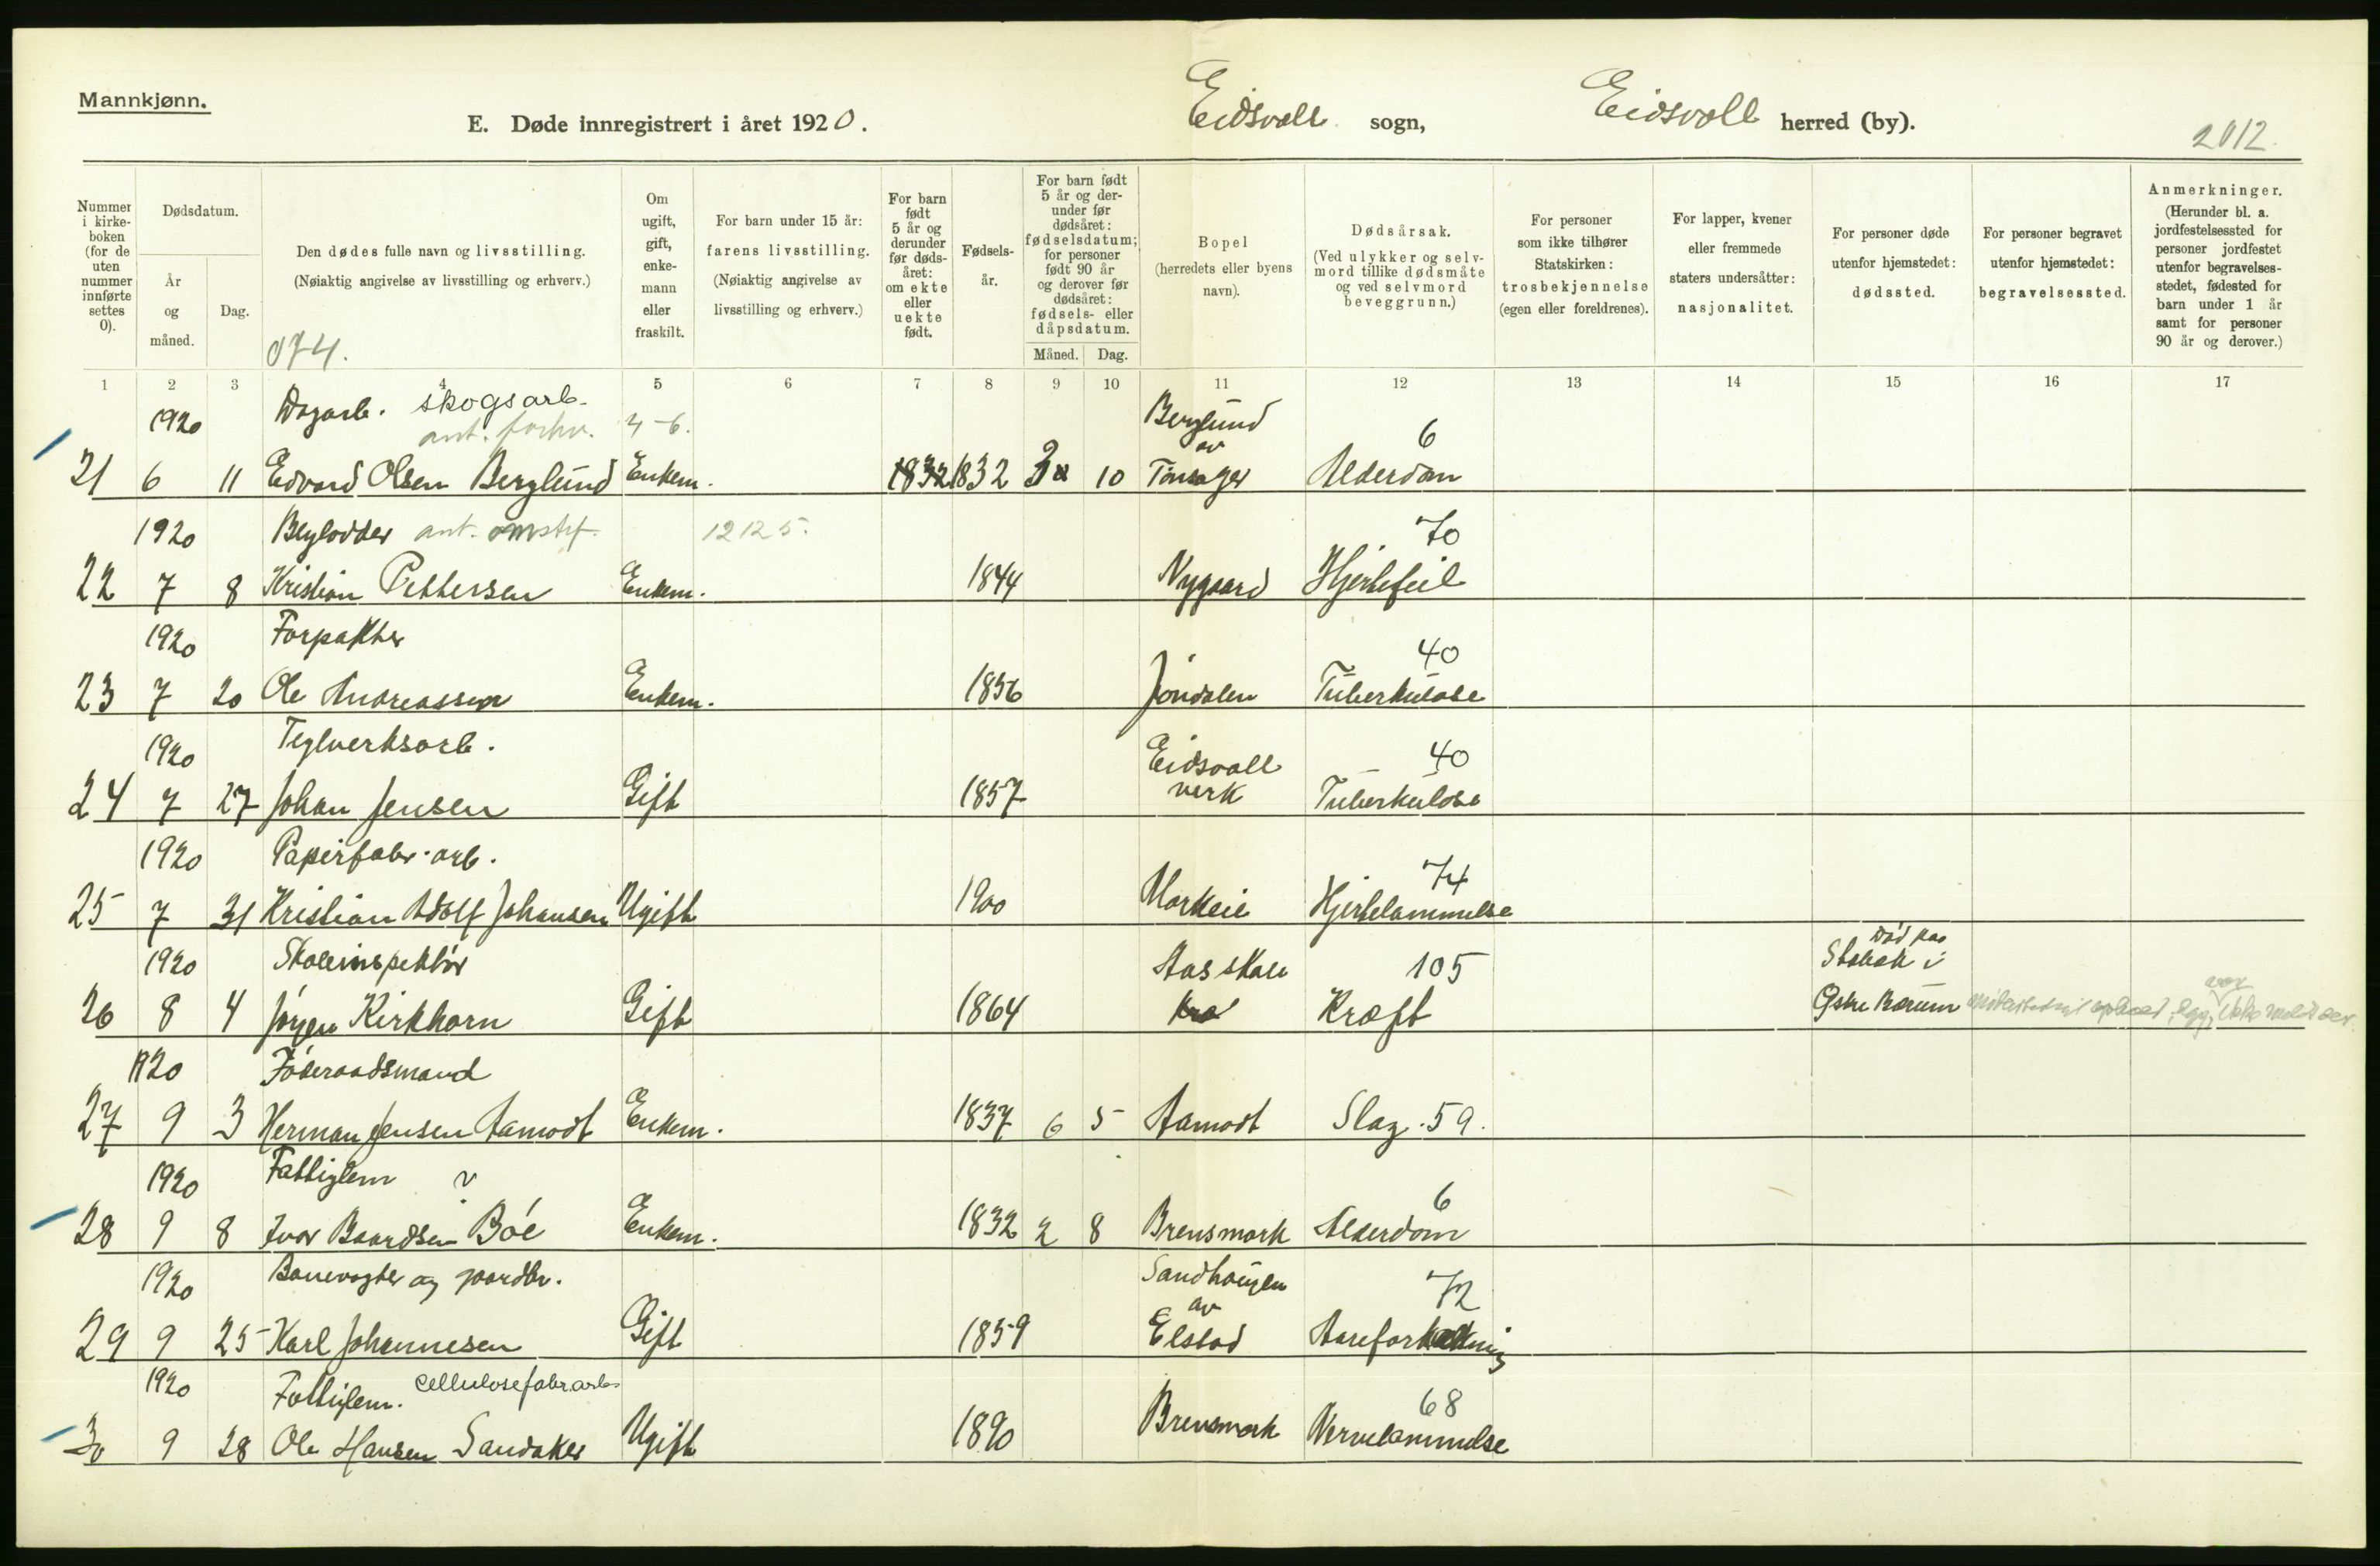 Mannkjønn.
E. Døde innregistrert i året 1920. Eidsvoll sogn, Eidsvoll herred (by).
2012.
Nummer i kirke-boken (for de uten nummer innførte settes 0).
Dødsdatum.
År og måned.
Dag.
Den dødes fulle navn og livsstilling.
(Nøiaktig angivelse av livsstilling og erhverv.)
074.
Om ugift, gift, enke-mann eller fraskilt.
For barn under 15 år: farens livsstilling. (Nøiaktig angivelse av livsstilling og erhverv.)
For barn født 5 år og derunder før døds-året: om ekte eller uekte født.
Fødsels-år.
For barn født 5 år og der-under før dødsåret: fødselsdatum; for personer født 90 år og derover før dødsåret: fødsels- eller dåpsdatum.
Måned. Dag.
Bopel (herredets eller byens navn).
Dødsårsak. (Ved ulykker og selv-mord tillike dødsmåte og ved selvmord beveggrunn.)
For personer som ikke tilhører Statskirken: trosbekjennelse (egen eller foreldrenes).
For lapper, kvener eller fremmede staters undersåtter: nasjonalitet.
For personer døde utenfor hjemstedet: dødssted.
For personer begravet utenfor hjemstedet: begravelsessted.
Anmerkninger. (Herunder bl. a. jordfestelsessted for personer jordfestet utenfor begravelses-stedet, fødested for barn under 1 år samt for personer 90 år og derover.)
1 2 3 4 5 6 7 8 9 10 11 12 13 14 15 16 17
1920 Dagarb. skogsarb. Berglund
ant. forhv. 4-6. av 6
21 6 11 Edvard Olsen Berglund Enkem. 1832 1832 10 Tønsager Alderdom
1920 Beglodder ant. 12125. 70
22 7 8 Kristian Pettersen Enkem. 1844 Nygaard Hjertefeil
1920 Forpakter 40
23 7 20 Ole Andreassen Enkem. 1856 Jøndalen Tuberkulose
1920 Teglverksarb. Eidsvoll 40
24 7 27 Johan Jensen Gift 1857 verk Tuberkulose
1920 Papirfabr. arb. 74
25 7 31 Kristian Adolf Johansen Ugift 1900 Morkeie Hjertelammelse
1920 Skoleinspektør Aas skole 105 Død paa Stabæk i
26 8 4 Jørgen Kirkhorn Gift 1864 Kræft Østre Bærum
1920 Føderaadsmand
27 9 3 Herman Jensen Aamodt Enkem. 1837 6 5 Aamodt Slag. 59.
1920 Fattiglem ? 6
28 9 8 Ivar Baardsen Bøe Enkem. 1832 2 8 Brensmork Alderdom
1920 Banevogter og gaardbr. Sandhaugen 72
av
29 9 25 Karl Johannesen Gift 1859 Elstad Aareforkalkning
1920 Fattiglem. Cellulosefabr.arb. 68
30 9 28 Ole Hansen Sandaker Ugift 1890 Brensmork Nervelammelse